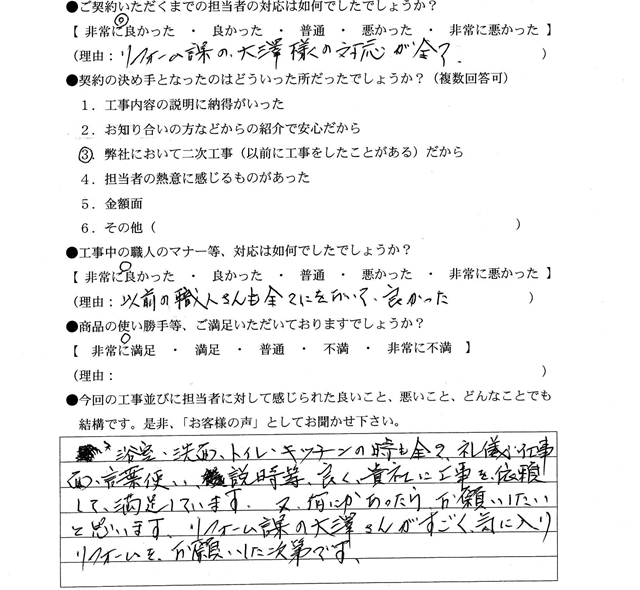 ●ご契約いただくまでの担当者の対応は如何でしたでしょうか？
【 非常に良かった ・ 良かった ・ 普通 ・ 悪かった ・ 非常に悪かった 】
(理由：リフォーム課の、大澤様くの対応が全て. )
●契約の決め手となったのはどういった所だったでしょうか？（複数回答可）
１．工事内容の説明に納得がいった
２．お知り合いの方などからの紹介で安心だから
③．弊社において二次工事（以前に工事をしたことがある）だから
４．担当者の熱意に感じるものがあった
５．金額面
６．その他（ ）
●工事中の職人のマナー等、対応は如何でしたでしょうか？
【 非常に良かった ・ 良かった ・ 普通 ・ 悪かった ・ 非常に悪かった 】
(理由：以前の職人さんも全てにおいて、良かった )
●商品の使い勝手等、ご満足いただいておりますでしょうか？
【 非常に満足 ・ 満足 ・ 普通 ・ 不満 ・ 非常に不満 】
(理由： )
●今回の工事並びに担当者に対して感じられた良いこと、悪いこと、どんなことでも
結構です。是非、「お客様の声」としてお聞かせ下さい。
浴室・洗面、トイレ・キッチンの時も全て、礼儀、仕事
面、言葉使い、説明時等、良く、貴社に工事を、依頼
して、満足しています. 又、何かあったらお願いしたい
と思います、リフォーム課の大澤さんがすごく、気に入り
リフォームを、お願いした次第です、